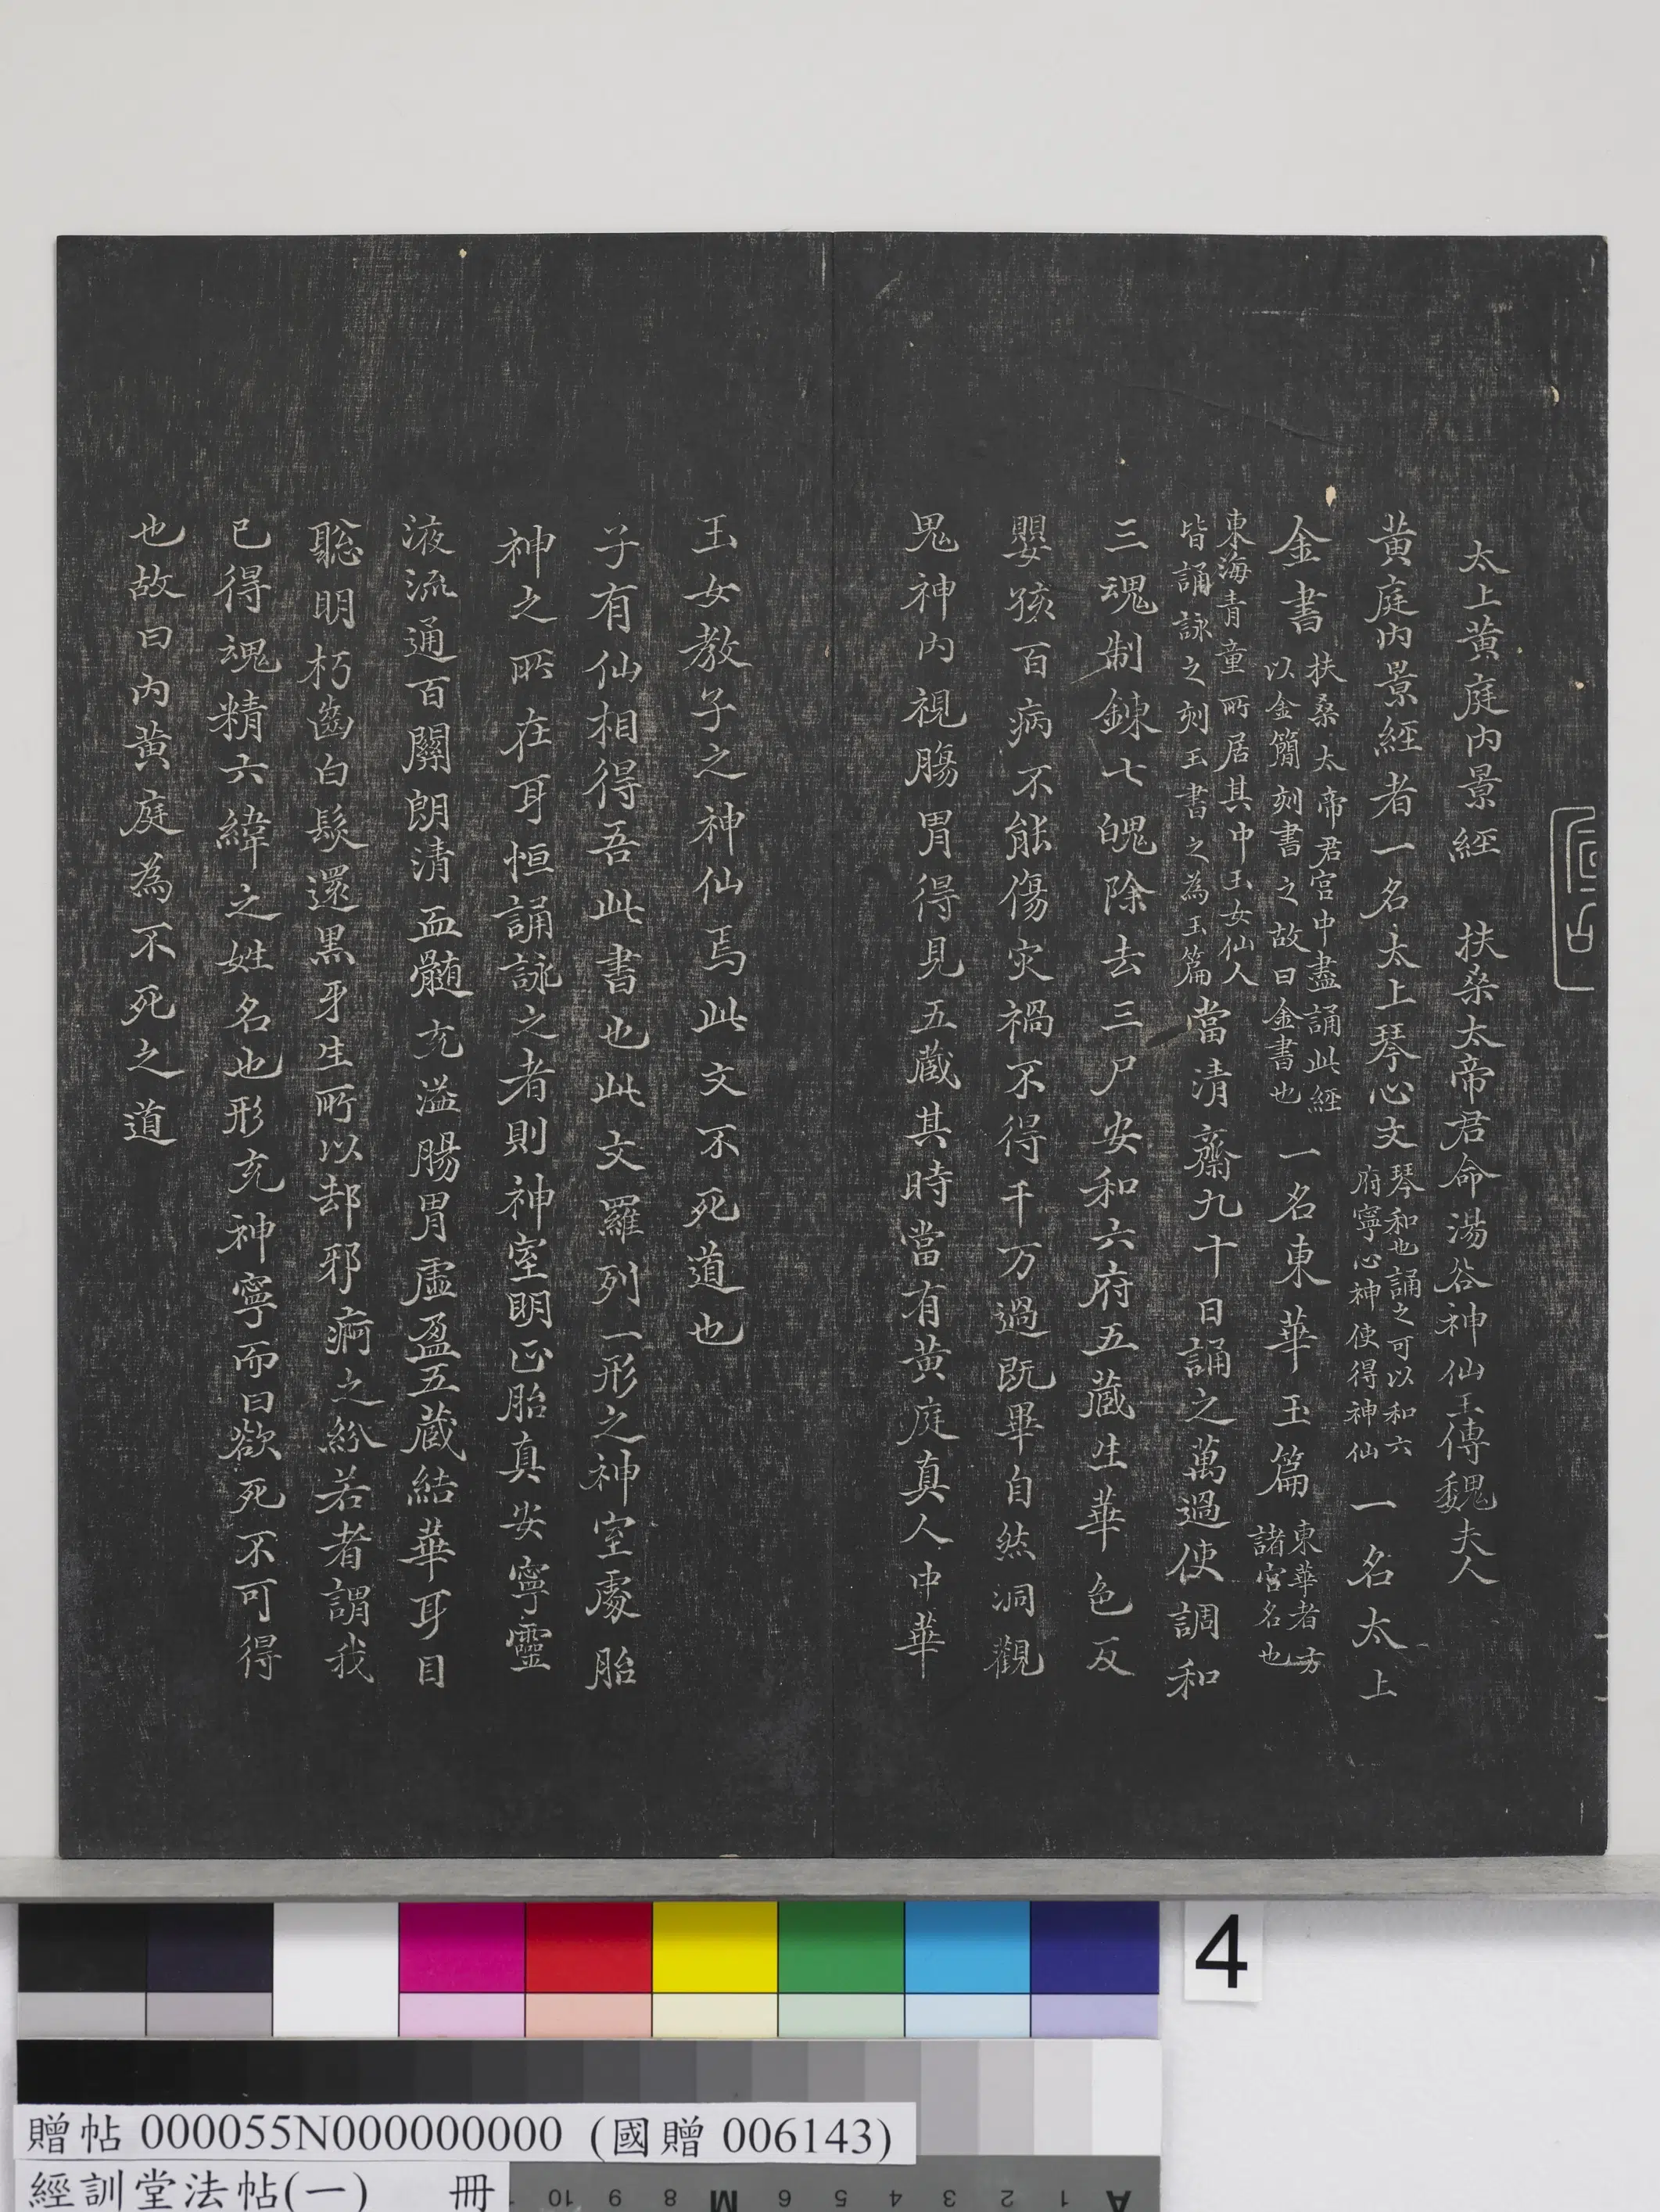 太上黃庭內景經　扶桑太帝君命湯谷神仙王傳魏夫人
黃庭內景經者一名太上琴心文琴和也誦之可以和六府寧心神使得神仙一名太上
金書扶桑太帝君宮中盡誦此經以金簡刻書之故曰金書也一名東華玉篇東華者方諸宮名也
東海青童所居其中玉女仙人皆誦詠之刻玉書之為玉篇當清齋九十日誦之萬過使調和
三魂制鍊七魄除去三尸安和六府五藏生華色反
嬰孩百病不能傷灾禍不得千万過既畢自然洞觀
鬼神內視膓胃得見五藏其時當有黃庭真人中華
玉女教子之神仙焉此文不死道也
子有仙相得吾此書也此文羅列一形之神室處胎
神之所在耳恒誦詠之者則神室明正胎真安寧靈
液流通百關朗清血髓充溢腸胃虛盈五藏結華耳目
聡明朽齒白髮還黑牙生所以却邪痾之紛若者謂我
已得魂精六緯之姓名也形充神寧而曰欲死不可得
也故曰內黃庭為不死之道
4
贈帖 000055N000000000 (國贈 006143)
經訓堂法帖(一)　冊
10 9 8 M 6 5 4 3 2 1 A